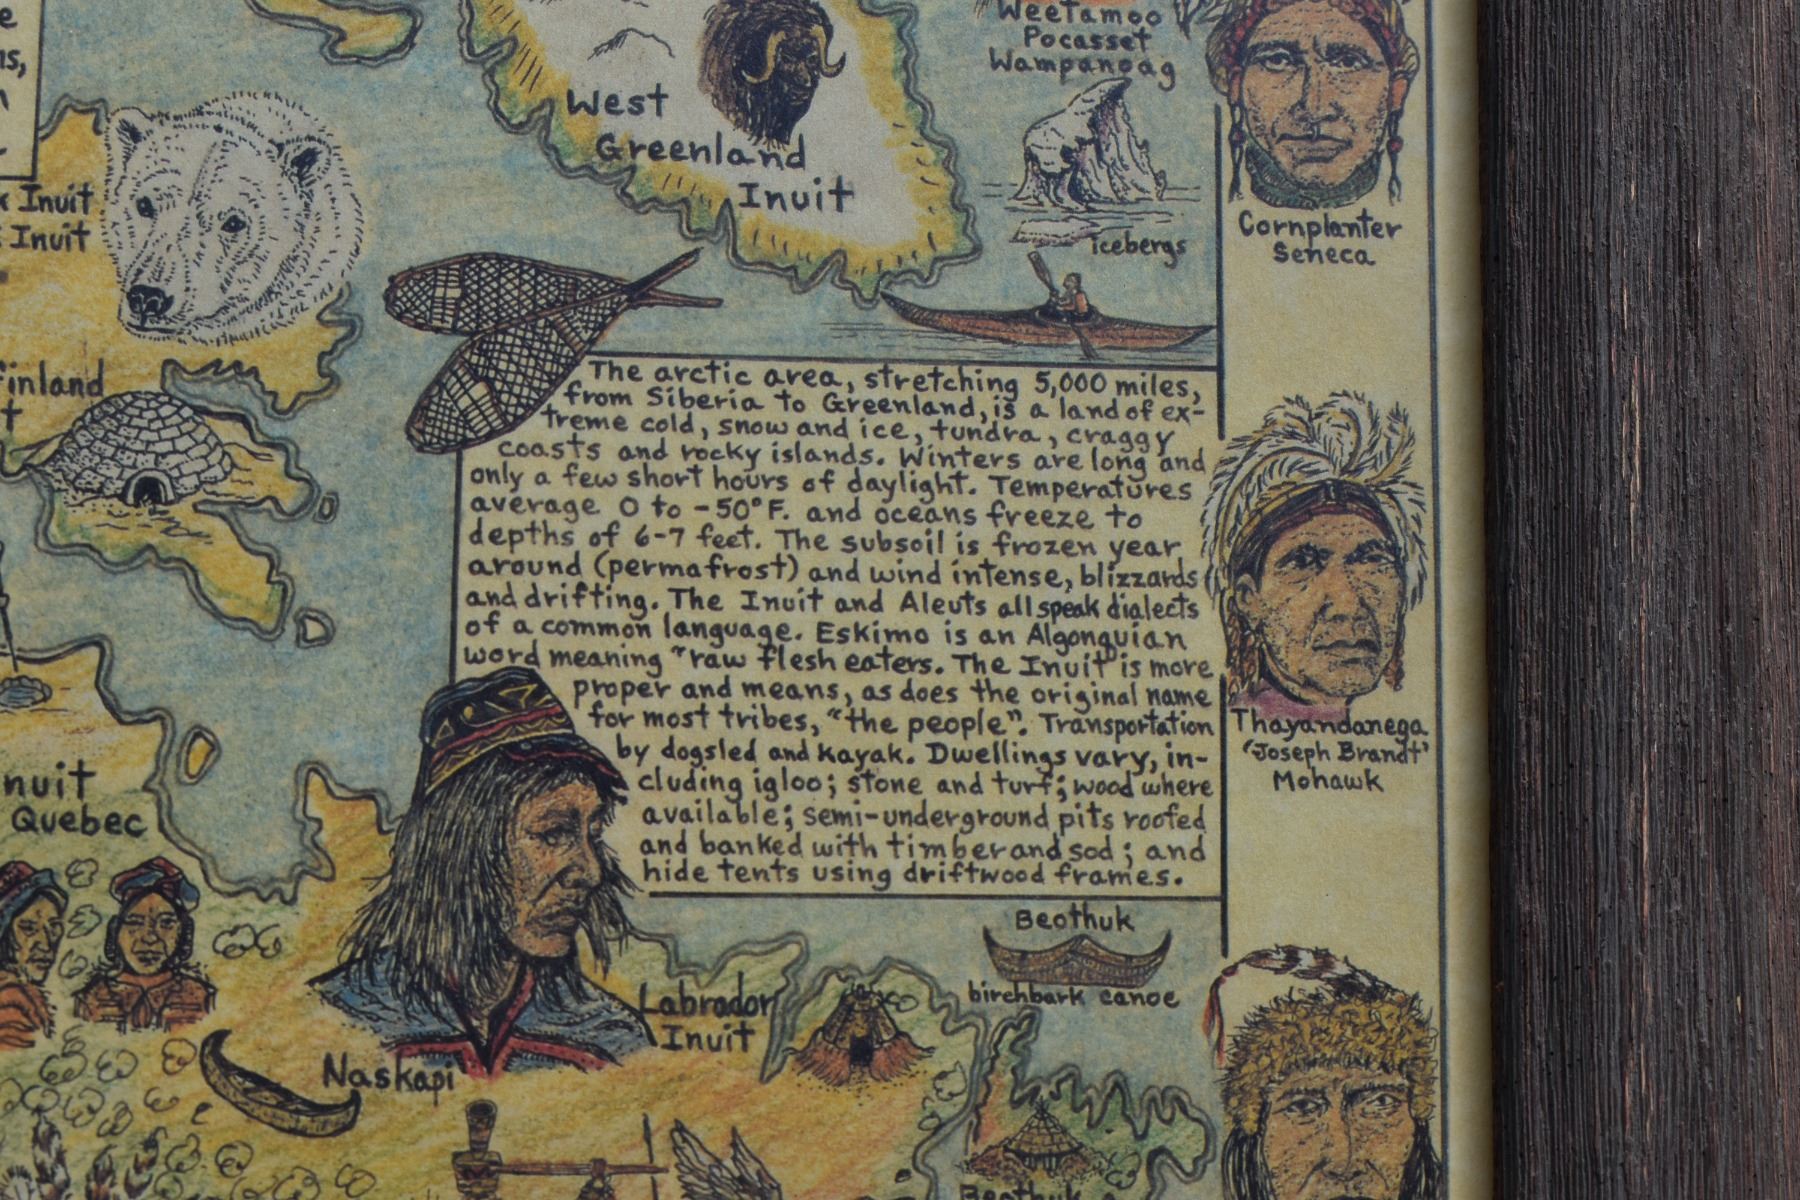 Weetamoo
Pocasset
Wampanoag
West
Greenland
Inuit
icebergs
Cornplanter
Seneca
Inuit
Inuit
The arctic area, stretching 5,000 miles,
from Siberia to Greenland, is a land of ex-
treme cold, snow and ice, tundra, craggy
coasts and rocky islands. Winters are long and
only a few short hours of daylight. Temperatures
average 0 to -50°F. and oceans freeze to
depths of 6-7 feet. The subsoil is frozen year
around (permafrost) and wind intense, blizzards
and drifting. The Inuit and Aleuts all speak dialects
of a common language. Eskimo is an Algonquian
word meaning "raw flesh eaters. The Inuit is more
proper and means, as does the original name
for most tribes, "the people". Transportation
by dogsled and kayak. Dwellings vary, in-
cluding igloo; stone and turf; wood where
available; semi-underground pits roofed
and banked with timber and sod; and
hide tents using driftwood frames.
Thayandanega
'Joseph Brandt'
Mohawk
Quebec
Beothuk
birchbark canoe
Labrador
Inuit
Naskapi
Beothuk